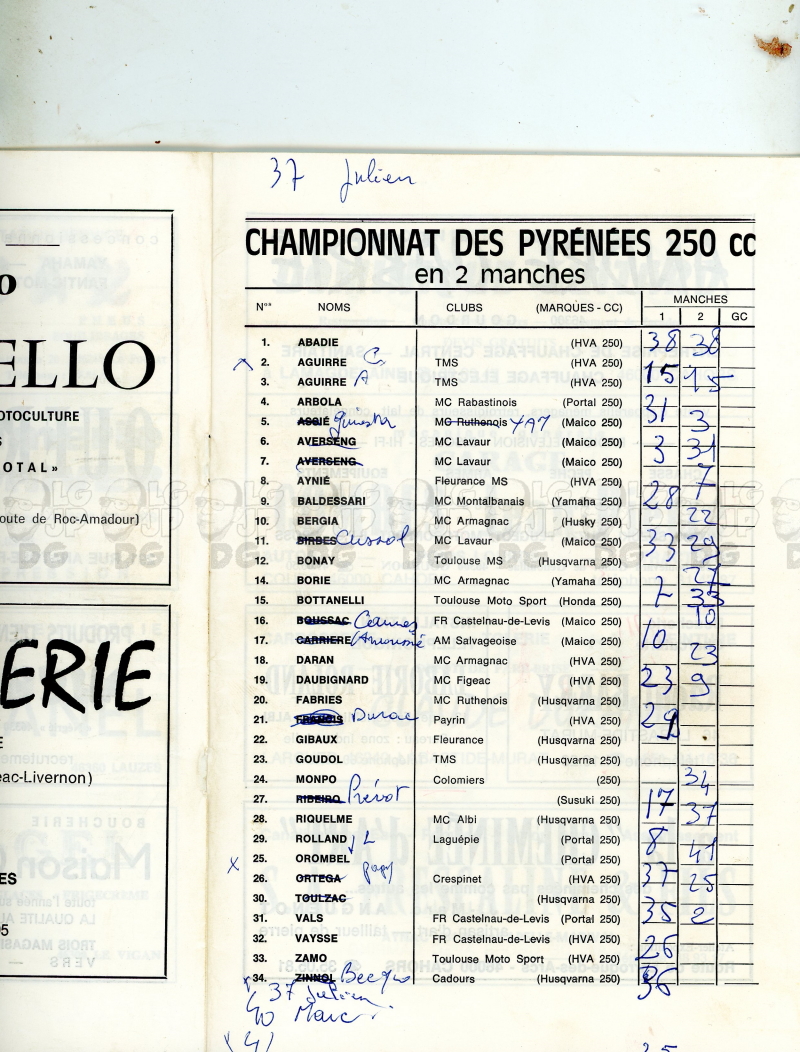 37 Julien
CHAMPIONNAT DES PYRÉNÉES 250 cc
en 2 manches
Nos NOMS CLUBS (MARQUES - CC) MANCHES
1 2 GC
1. ABADIE (HVA 250) 38 38
2. AGUIRRE C TMS (HVA 250)
3. AGUIRRE A TMS (HVA 250) 15 15
4. ARBOLA MC Rabastinois (Portal 250) 31 3
5. ASSIÉ MC Ruthenois (Maico 250)
6. AVERSENG MC Lavaur (Maico 250) 3 31
7. AVERSENG MC Lavaur (Maico 250)
8. AYNIÉ Fleurance MS (HVA 250) 7
9. BALDESSARI MC Montalbanais (Yamaha 250) 28
10. BERGIA MC Armagnac (Husky 250) 22
11. BIRBES Cussol MC Lavaur (Maico 250) 33 29
12. BONAY Toulouse MS (Husqvarna 250)
14. BORIE MC Armagnac (Yamaha 250) 7 27
15. BOTTANELLI Toulouse Moto Sport (Honda 250) 33
16. BOUSSAC FR Castelnau-de-Levis (Maico 250) 10
17. CARRIERE AM Salvageoise (Maico 250) 10
18. DARAN MC Armagnac (HVA 250) 23
19. DAUBIGNARD MC Figeac (HVA 250) 23 9
20. FABRIES MC Ruthenois (Husqvarna 250)
21. FRANCIS Durac Payrin (HVA 250) 29
22. GIBAUX Fleurance (Husqvarna 250)
23. GOUDOL TMS (Husqvarna 250)
24. MONPO Colomiers (250) 34
27. RIBEIRO Prévot (Susuki 250) 17
28. RIQUELME MC Albi (Husqvarna 250) 37
29. ROLLAND J L Laguépie (Portal 250) 8
25. OROMBEL (Portal 250) 41
26. ORTEGA Crespinet (HVA 250) 37 25
30. TOULZAC (Husqvarna 250)
31. VALS FR Castelnau-de-Levis (Portal 250) 35 2
32. VAYSSE FR Castelnau-de-Levis (HVA 250)
33. ZAMO Toulouse Moto Sport (HVA 250) 26
34. ZINNOL Cadours (Husqvarna 250) 36
37 Julien
40 Marc
41
ELLO
OTOCULTURE
OTAL »
oute de Roc-Amadour)
ERIE
eac-Livernon)
ES
LGJP
DG